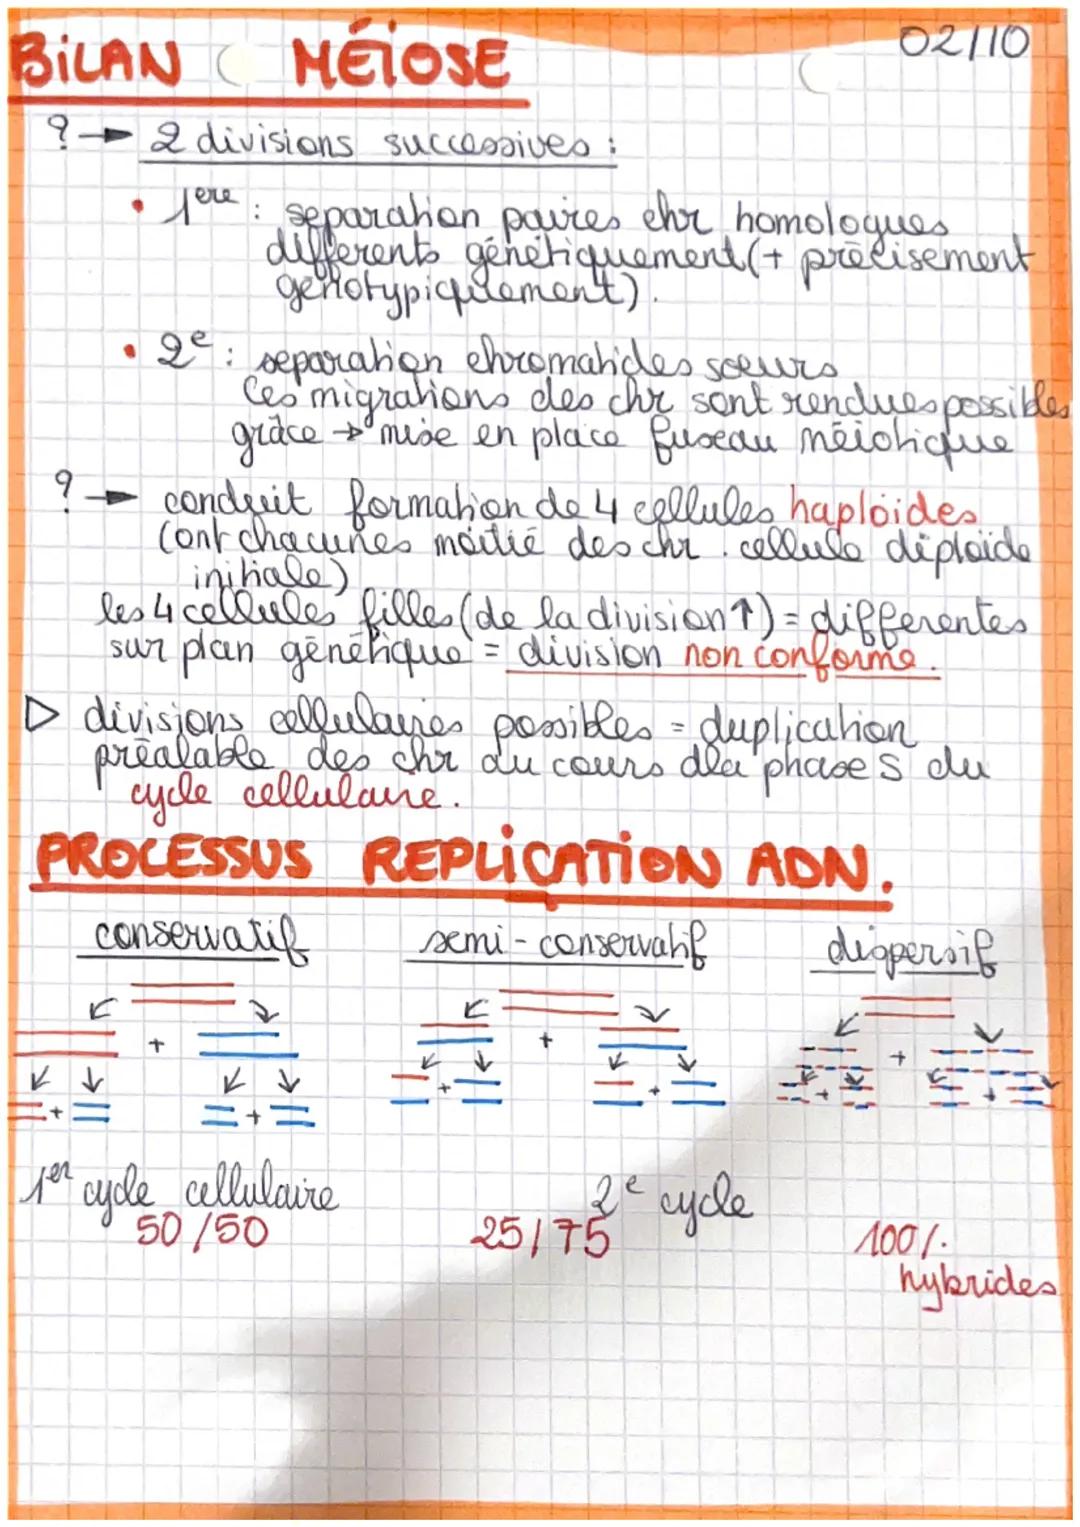 BILAN MÉIOSE
02/10
? → 2 divisions successives :
• 1ere : separation paires chr homologues
différents génétiquement (+ précisement
génotypiquement).
• 2e : separation chromatides soeurs
Ces migrations des chr sont rendues possibles
grâce → mise en place fuseau méiotique
? → conduit formation de 4 cellules haploïdes
(ont chacunes moitié des chr. cellule diploïde
initiale)
les 4 cellules filles (de la division ↑) = differentes
sur plan génétique = division non conforme.
▷ divisions cellulaires possibles = duplication
préalable des chr au cours dla phase S du
cycle cellulaire.
PROCESSUS REPLICATION ADN.
conservatif semi-conservatif dispersif
+ + +
+ + + + + +
1er cycle cellulaire 2e cycle
50/50 25/75 100%
hybrides